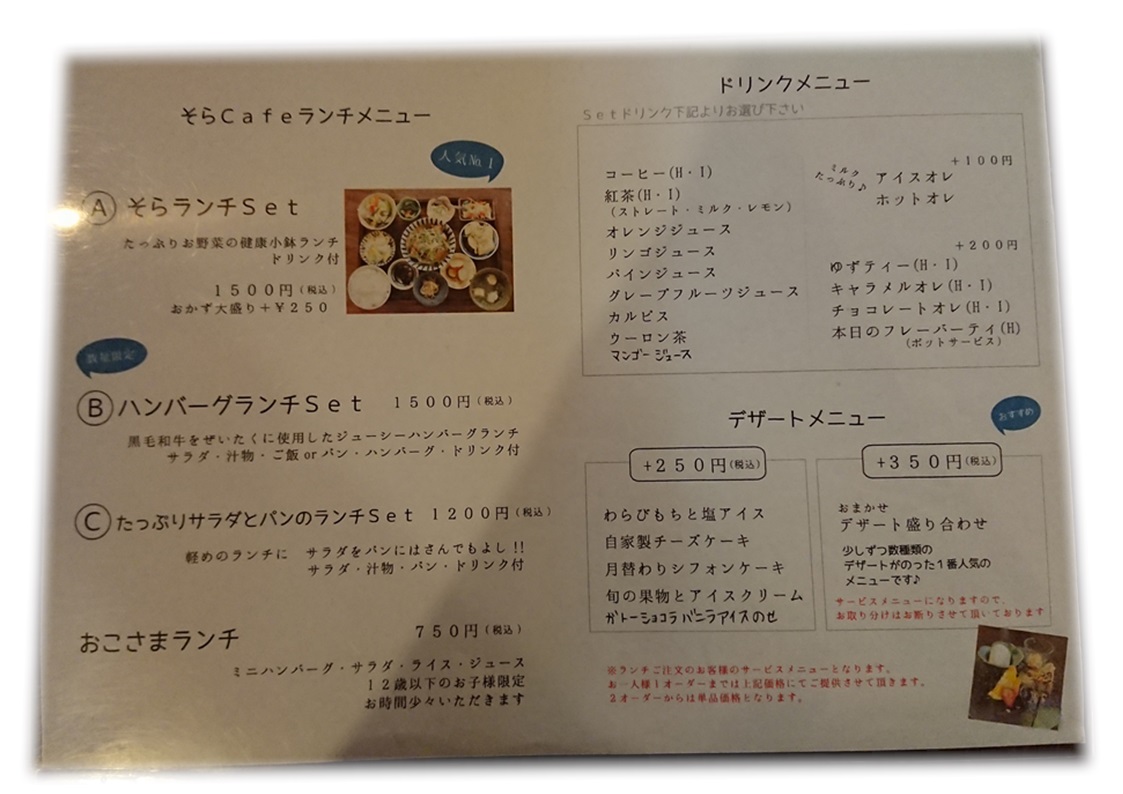 そらＣａｆｅランチメニュー
人気№１
Ⓐ そらランチＳｅｔ
たっぷりお野菜の健康小鉢ランチ
ドリンク付
１５００円(税込)
おかず大盛り＋￥２５０
数量限定
Ⓑ ハンバーグランチＳｅｔ １５００円(税込)
黒毛和牛をぜいたくに使用したジューシーハンバーグランチ
サラダ・汁物・ご飯 or パン・ハンバーグ・ドリンク付
Ⓒ たっぷりサラダとパンのランチＳｅｔ １２００円(税込)
軽めのランチに サラダをパンにはさんでもよし!!
サラダ・汁物・パン・ドリンク付
おこさまランチ ７５０円(税込)
ミニハンバーグ・サラダ・ライス・ジュース
１２歳以下のお子様限定
お時間少々いただきます
ドリンクメニュー
Ｓｅｔドリンク下記よりお選び下さい
コーヒー(H・I)
紅茶(H・I)
(ストレート・ミルク・レモン)
オレンジジュース
リンゴジュース
パインジュース
グレープフルーツジュース
カルピス
ウーロン茶
マンゴージュース
＋１００円
ミルク
たっぷり♪
アイスオレ
ホットオレ
＋２００円
ゆずティー(H・I)
キャラメルオレ(H・I)
チョコレートオレ(H・I)
本日のフレーバーティ(H)
(ポットサービス)
デザートメニュー
おすすめ
＋２５０円(税込)
わらびもちと塩アイス
自家製チーズケーキ
月替わりシフォンケーキ
旬の果物とアイスクリーム
ガトーショコラバニラアイスのせ
＋３５０円(税込)
おまかせ
デザート盛り合わせ
少しずつ数種類の
デザートがのった１番人気の
メニューです♪
サービスメニューになりますので、
お取り分けはお断りさせて頂いております
※ランチご注文のお客様のサービスメニューとなります。
お一人様１オーダーまでは上記価格にてご提供させて頂きます。
２オーダーからは単品価格となります。